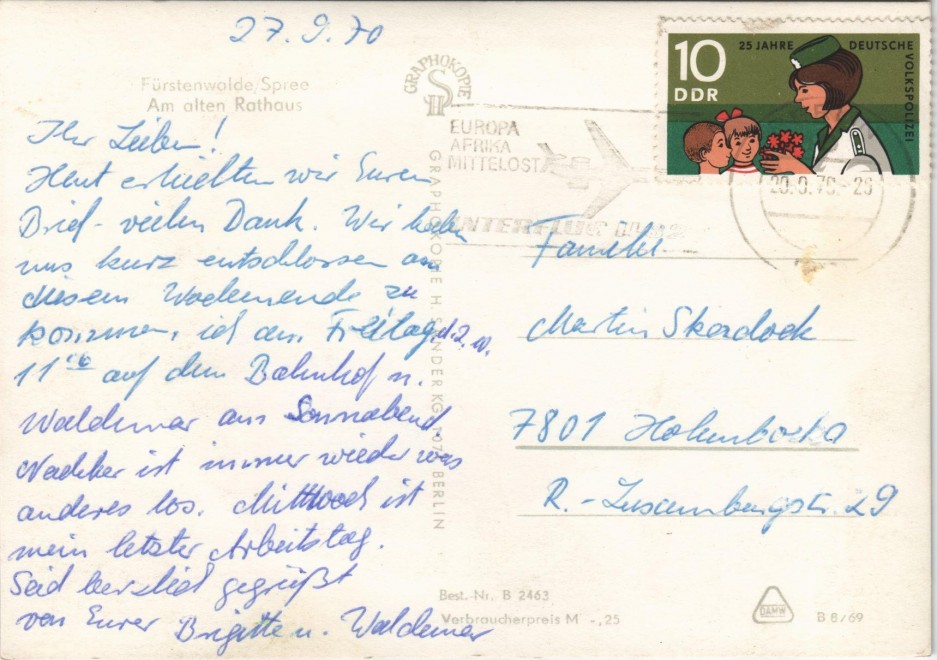 27.9.70
Fürstenwalde/Spree
Am alten Rathaus
Ihr Lieben!
Heut erhielten wir Euren
Brief - vielen Dank. Wir haben
uns kurz entschlossen an
diesem Wochenende zu
kommen, ich am Freitag, d. 2.10.
11 auf dem Bahnhof u.
Waldemar am Sonnabend.
Nachher ist immer wieder was
anderes los. Mittwoch ist
mein letzter Arbeitstag.
Seid herzlich gegrüßt
von Eurer Brigitte u. Waldemar
GRAPHOKOPIE
H S
GRAPHOKOPIE H. SANDER KG, 107 BERLIN
EUROPA
AFRIKA
MITTELOST
INTERFLUG
10
DDR
25 JAHRE DEUTSCHE
VOLKSPOLIZEI
Familie
Martin Skordock
7801 Hohenbocka
R.-Luxemburgstr. 29
Best.-Nr. B 2463
Verbraucherpreis M -,25
DAMW
B 8/69